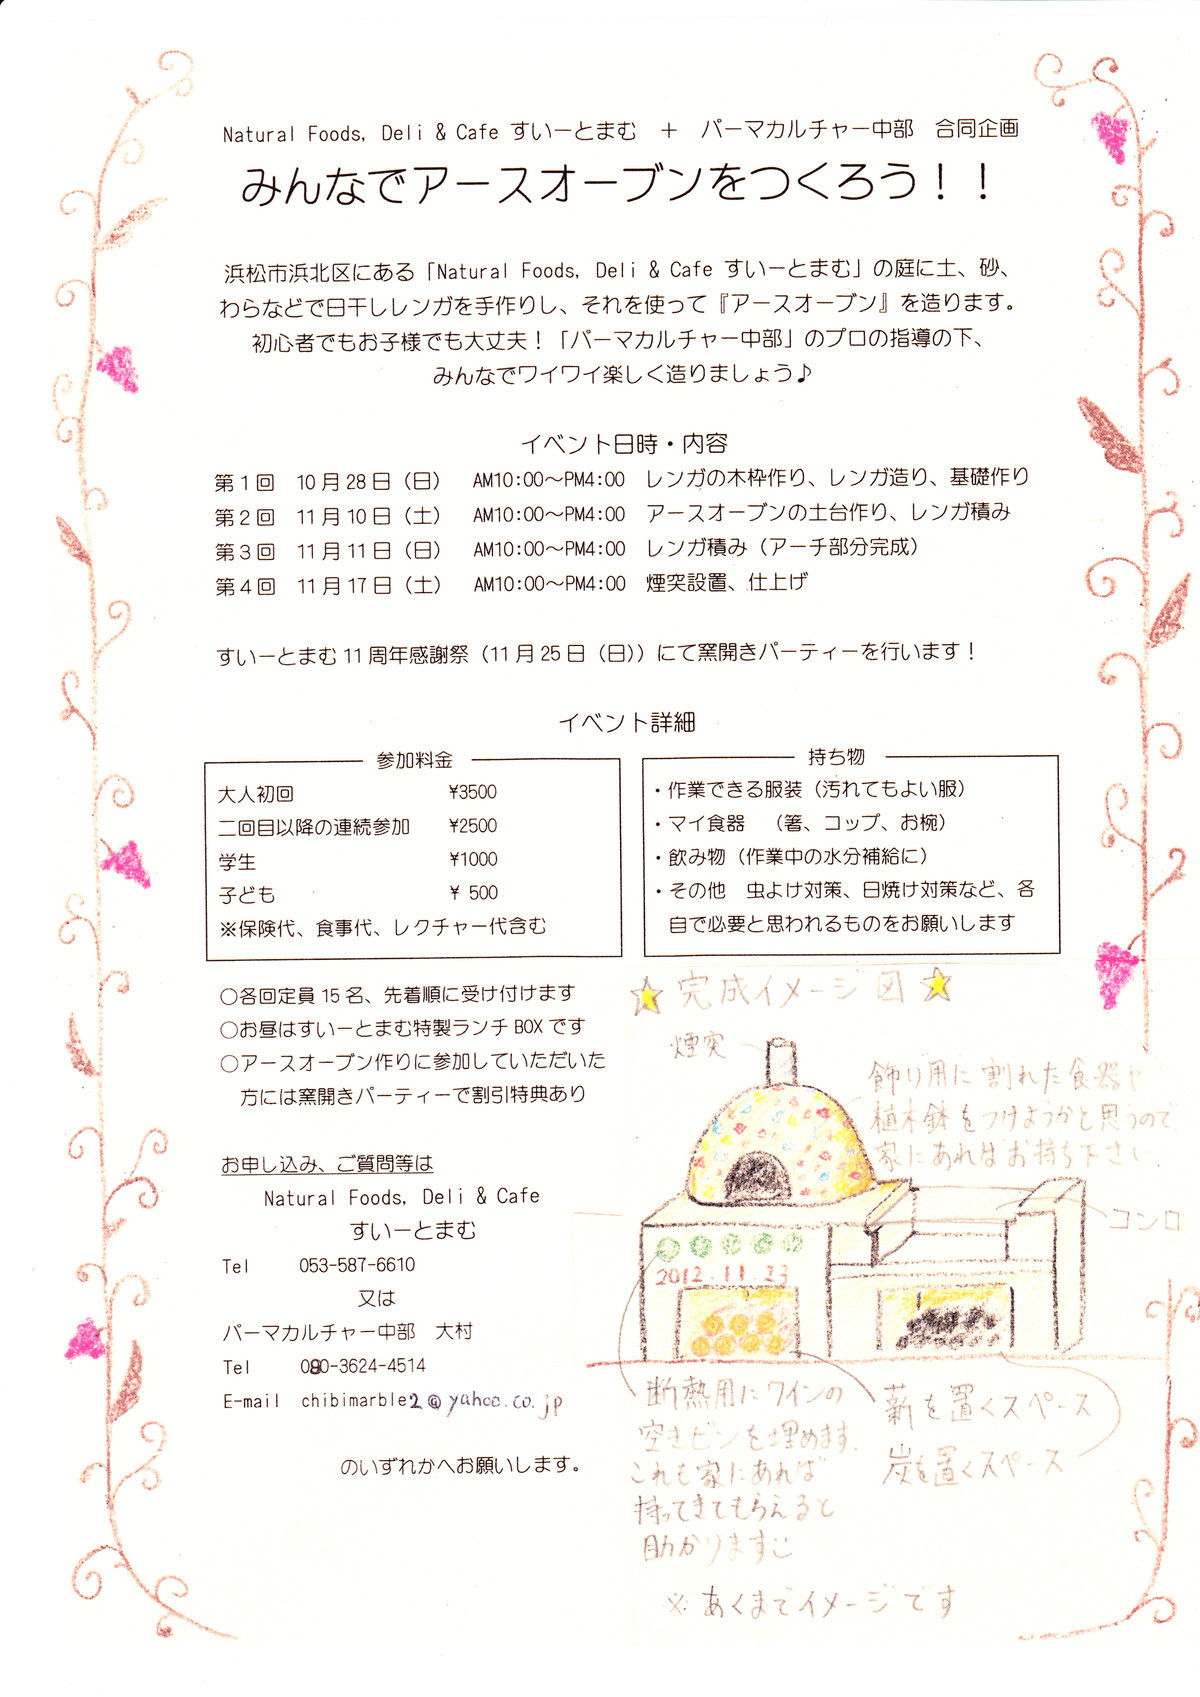 Natural Foods, Deli & Cafe すいーとまむ ＋ パーマカルチャー中部 合同企画
みんなでアースオーブンをつくろう！！
浜松市浜北区にある「Natural Foods, Deli & Cafe すいーとまむ」の庭に土、砂、
わらなどで日干しレンガを手作りし、それを使って『アースオーブン』を造ります。
初心者でもお子様でも大丈夫！「パーマカルチャー中部」のプロの指導の下、
みんなでワイワイ楽しく造りましょう♪
イベント日時・内容
第１回 10月28日（日） AM10:00～PM4:00 レンガの木枠作り、レンガ造り、基礎作り
第２回 11月10日（土） AM10:00～PM4:00 アースオーブンの土台作り、レンガ積み
第３回 11月11日（日） AM10:00～PM4:00 レンガ積み（アーチ部分完成）
第４回 11月17日（土） AM10:00～PM4:00 煙突設置、仕上げ
すいーとまむ11周年感謝祭（11月25日（日））にて窯開きパーティーを行います！
イベント詳細
参加料金
大人初回 ¥3500
二回目以降の連続参加 ¥2500
学生 ¥1000
子ども ¥ 500
※保険代、食事代、レクチャー代含む
持ち物
・作業できる服装（汚れてもよい服）
・マイ食器 （箸、コップ、お椀）
・飲み物（作業中の水分補給に）
・その他 虫よけ対策、日焼け対策など、各
自で必要と思われるものをお願いします
○各回定員15名、先着順に受け付けます
○お昼はすいーとまむ特製ランチBOXです
○アースオーブン作りに参加していただいた
方には窯開きパーティーで割引特典あり
お申し込み、ご質問等は
Natural Foods, Deli & Cafe
すいーとまむ
Tel 053-587-6610
又は
パーマカルチャー中部 大村
Tel 080-3624-4514
E-mail chibimarble2@yahoo.co.jp
のいずれかへお願いします。
☆完成イメージ図☆
煙突
飾り用に割れた食器や
植木鉢をつけようかと思うので、
家にあればお持ち下さい。
コンロ
2012.11.23
断熱用にワインの
空きビンを埋めます。
これも家にあれば
持ってきてもらえると
助かります
薪を置くスペース
炭を置くスペース
※あくまでイメージです